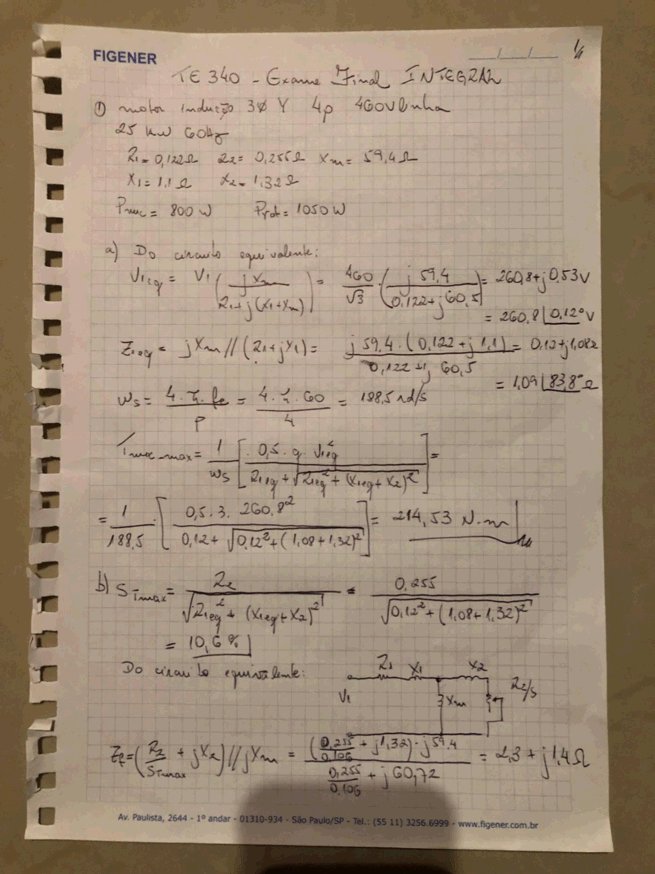 FIGENER
1/4
TE 340 - Exame Final INTEGRAL
1) motor indução 3Ø Y 4p 460V linha
25 kW 60Hz
R1 = 0,122Ω R2 = 0,255Ω Xm = 59,4Ω
X1 = 1,1Ω X2 = 1,32Ω
Pmec = 800 W Prot = 1050 W
a) Do circuito equivalente:
V1eq = V1 (j Xm / R1 + j(X1+Xm)) = 460/√3 · (j 59,4 / 0,122 + j 60,5) = 260,8 + j 0,53 V
= 260,8 ∠0,12° V
Z1eq = jXm // (R1 + jX1) = j 59,4 · (0,122 + j 1,1) / 0,122 + j 60,5 = 0,12 + j 1,08Ω
= 1,09 ∠83,8° Ω
ws = 4·π·fe / p = 4·π·60 / 4 = 188,5 rd/s
Tmec_max = 1/ws [0,5 · q · V1eq² / R1eq + √(R1eq² + (X1eq + X2)²)] =
= 1/188,5 · [0,5 · 3 · 260,8² / 0,12 + √(0,12² + (1,08 + 1,32)²)] = 214,53 N.m
b) sTmax = R2 / √(R1eq² + (X1eq + X2)²) = 0,255 / √(0,12² + (1,08 + 1,32)²)
= 10,6 %
Do circuito equivalente:
R1 X1 X2
V1 Xm R2/s
Zf = (R2/sTmax + jX2) // jXm = (0,255/0,106 + j 1,32) · j 59,4 / 0,255/0,106 + j 60,72 = 2,3 + j 1,4 Ω
Av. Paulista, 2644 - 1º andar - 01310-934 - São Paulo/SP - Tel.: (55 11) 3256.6999 - www.figener.com.br